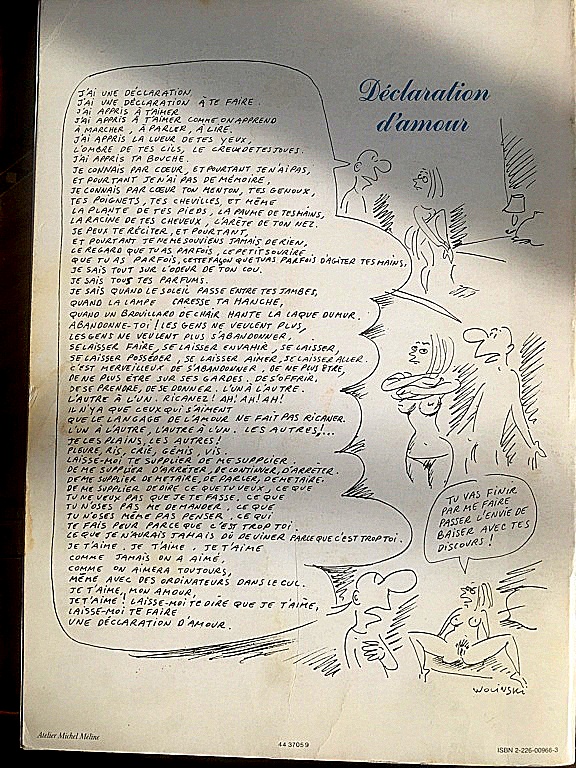 Déclaration
d'amour
J'AI UNE DÉCLARATION,
J'AI UNE DÉCLARATION À TE FAIRE.
J'AI APPRIS À T'AIMER
J'AI APPRIS À T'AIMER COMME ON APPREND
À MARCHER, À PARLER, À LIRE.
J'AI APPRIS LA LUEUR DE TES YEUX,
L'OMBRE DE TES CILS, LE CREUX DE TES JOUES.
J'AI APPRIS TA BOUCHE.
JE CONNAIS PAR CŒUR, ET POURTANT JE N'AI PAS,
ET POURTANT JE N'AI PAS DE MÉMOIRE,
JE CONNAIS PAR CŒUR TON MENTON, TES GENOUX,
TES POIGNETS, TES CHEVILLES, ET MÊME
LA PLANTE DE TES PIEDS, LA PAUME DE TES MAINS,
LA RACINE DE TES CHEVEUX, L'ARÊTE DE TON NEZ.
JE PEUX TE RÉCITER, ET POURTANT,
ET POURTANT JE NE ME SOUVIENS JAMAIS DE RIEN,
LE REGARD QUE TU AS PARFOIS, LE PETIT SOURIRE
QUE TU AS PARFOIS, CETTE FAÇON QUE TU AS PARFOIS D'AGITER TES MAINS,
JE SAIS TOUT SUR L'ODEUR DE TON COU.
JE SAIS TOUS TES PARFUMS.
JE SAIS QUAND LE SOLEIL PASSE ENTRE TES JAMBES,
QUAND LA LAMPE CARESSE TA HANCHE,
QUAND UN BROUILLARD DE CHAIR HANTE LA LAQUE DU MUR.
ABANDONNE-TOI! LES GENS NE VEULENT PLUS,
LES GENS NE VEULENT PLUS S'ABANDONNER,
SE LAISSER FAIRE, SE LAISSER ENVAHIR, SE LAISSER,
SE LAISSER POSSÉDER, SE LAISSER AIMER, SE LAISSER ALLER.
C'EST MERVEILLEUX DE S'ABANDONNER, DE NE PLUS ÊTRE,
DE NE PLUS ÊTRE SUR SES GARDES. DE S'OFFRIR,
DE SE PRENDRE, DE SE DONNER. L'UN À L'AUTRE.
L'AUTRE À L'UN. RICANEZ! AH! AH! AH!
IL N'Y A QUE CEUX QUI S'AIMENT
QUE LE LANGAGE DE L'AMOUR NE FAIT PAS RICANER.
L'UN À L'AUTRE, L'AUTRE À L'UN. LES AUTRES!...
JE LES PLAINS, LES AUTRES!
PLEURE, RIS, CRIE, GÉMIS, VIS.
LAISSE-MOI TE SUPPLIER DE ME SUPPLIER
DE ME SUPPLIER D'ARRÊTER, DE CONTINUER, D'ARRÊTER.
DE ME SUPPLIER DE ME TAIRE, DE PARLER, DE ME TAIRE.
DE ME SUPPLIER DE DIRE CE QUE TU VEUX, CE QUE
TU NE VEUX PAS QUE JE TE FASSE. CE QUE
TU N'OSES PAS ME DEMANDER. CE QUE
TU N'OSES MÊME PAS PENSER. CE QUI
TE FAIS PEUR PARCE QUE C'EST TROP TOI.
CE QUE JE N'AURAIS JAMAIS DÛ DEVINER PARCE QUE C'EST TROP TOI.
JE T'AIME, JE T'AIME, JE T'AIME
COMME JAMAIS ON A AIMÉ,
COMME ON AIMERA TOUJOURS,
MÊME AVEC DES ORDINATEURS DANS LE CUL.
JE T'AIME, MON AMOUR,
JE T'AIME! LAISSE-MOI TE DIRE QUE JE T'AIME,
LAISSE-MOI TE FAIRE
UNE DÉCLARATION D'AMOUR.
TU VAS FINIR
PAR ME FAIRE
PASSER L'ENVIE DE
BAISER AVEC TES
DISCOURS!
WOLINSKI
Atelier Michel Méline
44 3705 9
ISBN 2-226-00966-3